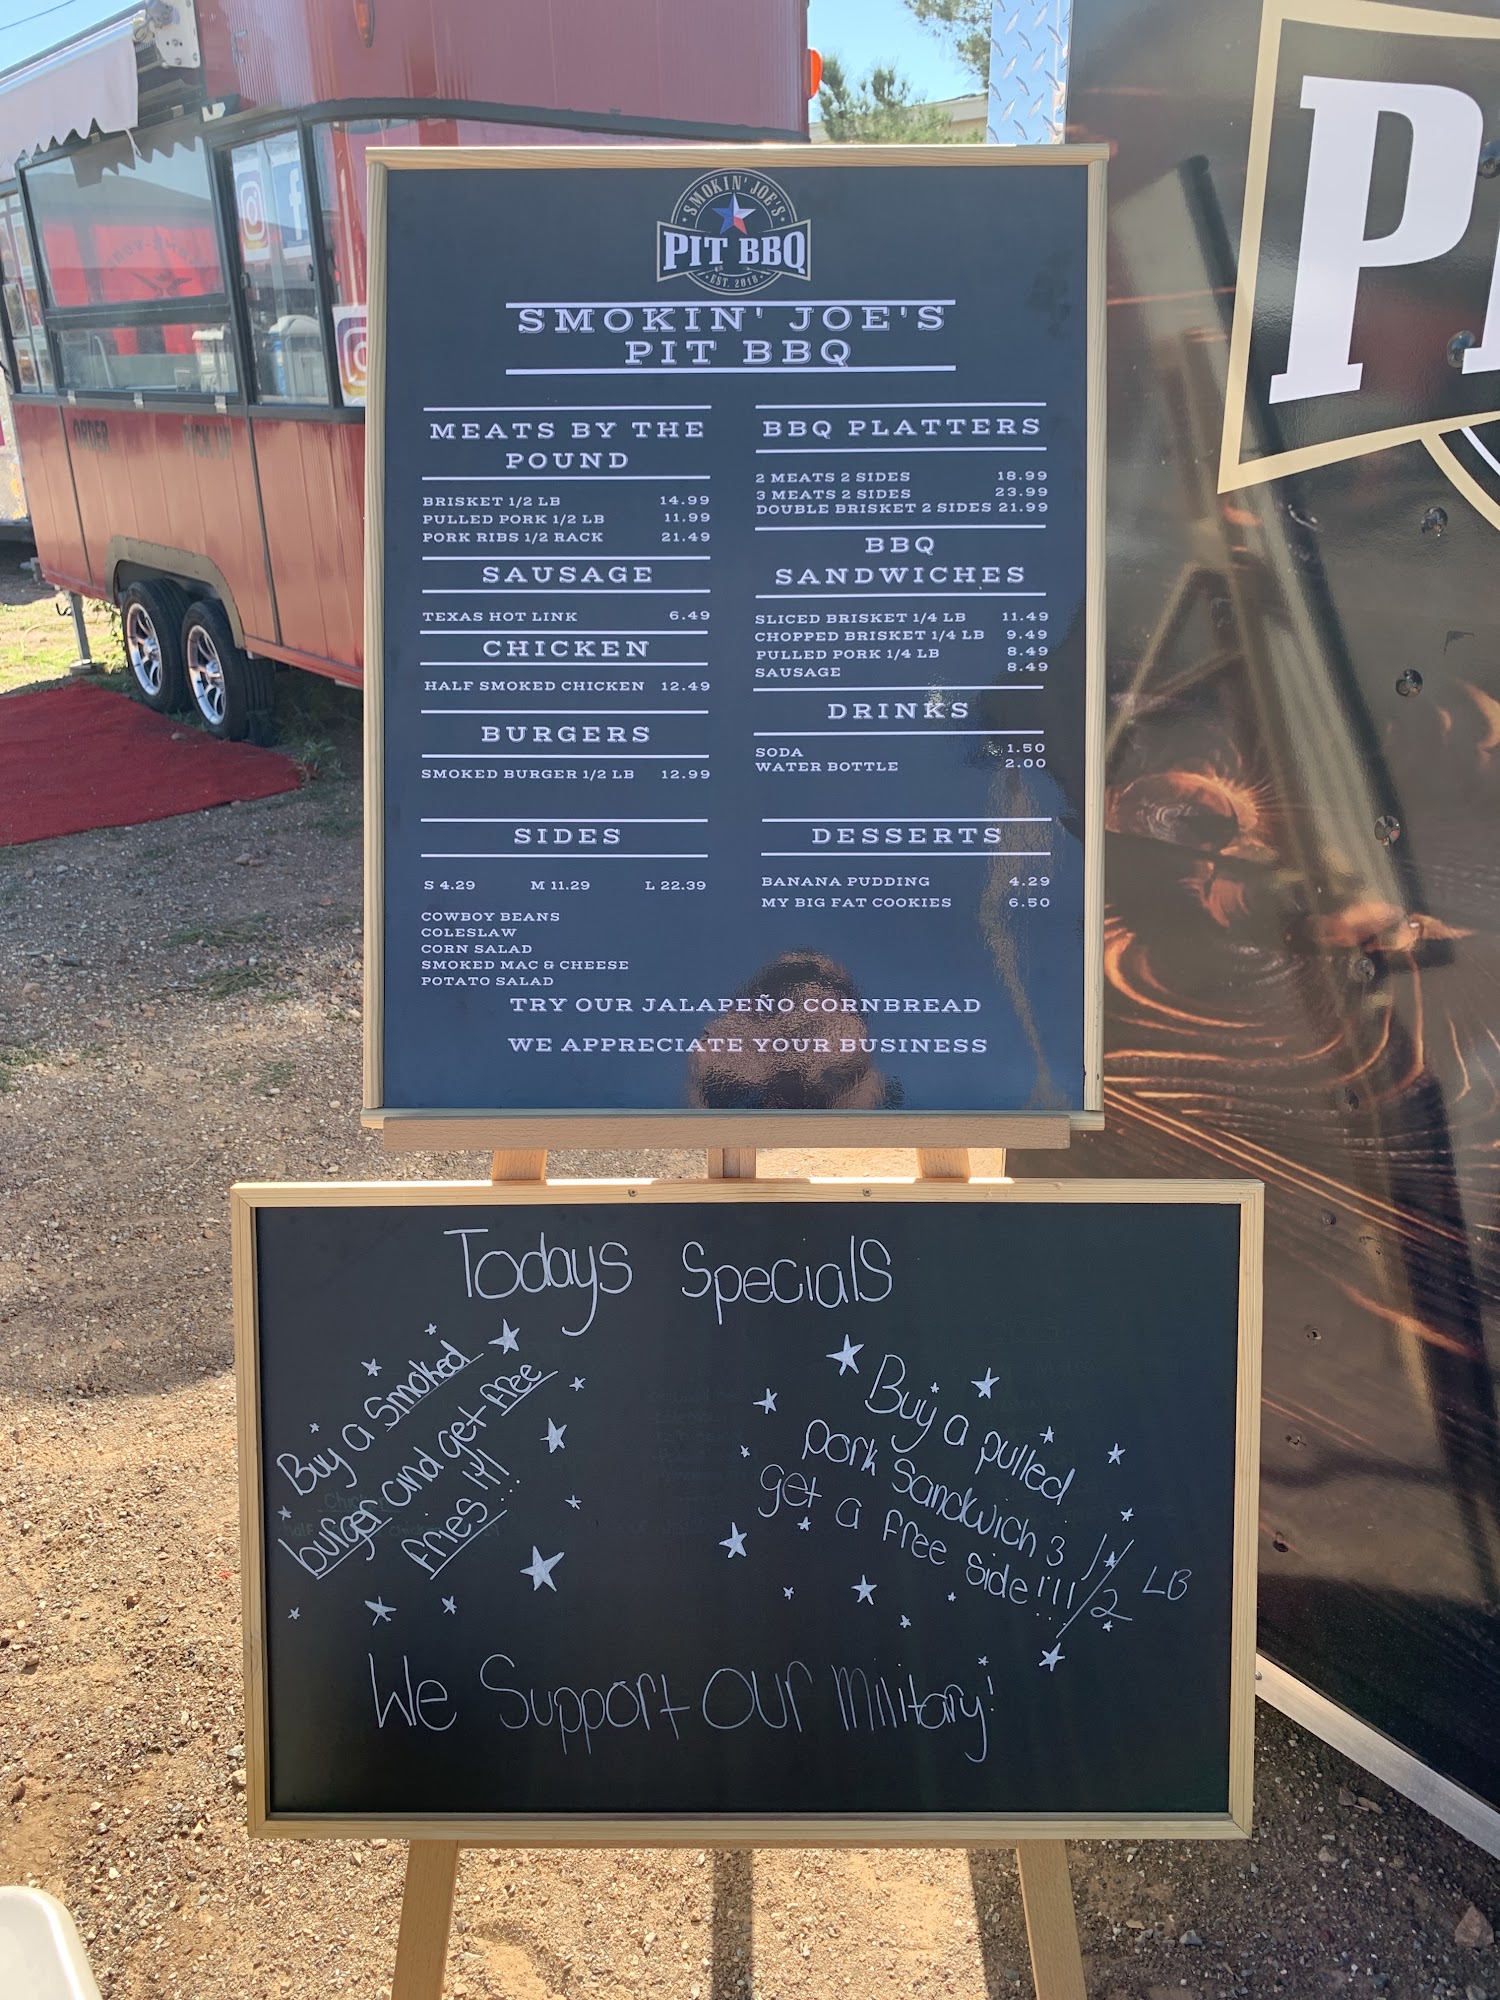 SMOKIN' JOE'S
PIT BBQ
EST. 2018
SMOKIN' JOE'S
PIT BBQ
MEATS BY THE
POUND
BRISKET 1/2 LB 14.99
PULLED PORK 1/2 LB 11.99
PORK RIBS 1/2 RACK 21.49
SAUSAGE
TEXAS HOT LINK 6.49
CHICKEN
HALF SMOKED CHICKEN 12.49
BURGERS
SMOKED BURGER 1/2 LB 12.99
SIDES
S 4.29 M 11.29 L 22.39
COWBOY BEANS
COLESLAW
CORN SALAD
SMOKED MAC & CHEESE
POTATO SALAD
BBQ PLATTERS
2 MEATS 2 SIDES 18.99
3 MEATS 2 SIDES 23.99
DOUBLE BRISKET 2 SIDES 21.99
BBQ
SANDWICHES
SLICED BRISKET 1/4 LB 11.49
CHOPPED BRISKET 1/4 LB 9.49
PULLED PORK 1/4 LB 8.49
SAUSAGE 8.49
DRINKS
SODA 1.50
WATER BOTTLE 2.00
DESSERTS
BANANA PUDDING 4.29
MY BIG FAT COOKIES 6.50
TRY OUR JALAPEÑO CORNBREAD
WE APPRECIATE YOUR BUSINESS
Todays Specials
Buy a Smoked
burger and get free
fries!!!
Buy a pulled
pork Sandwich 3 1/2 LB
get a free side!!!
We Support Our Military!
ORDER PICK UP